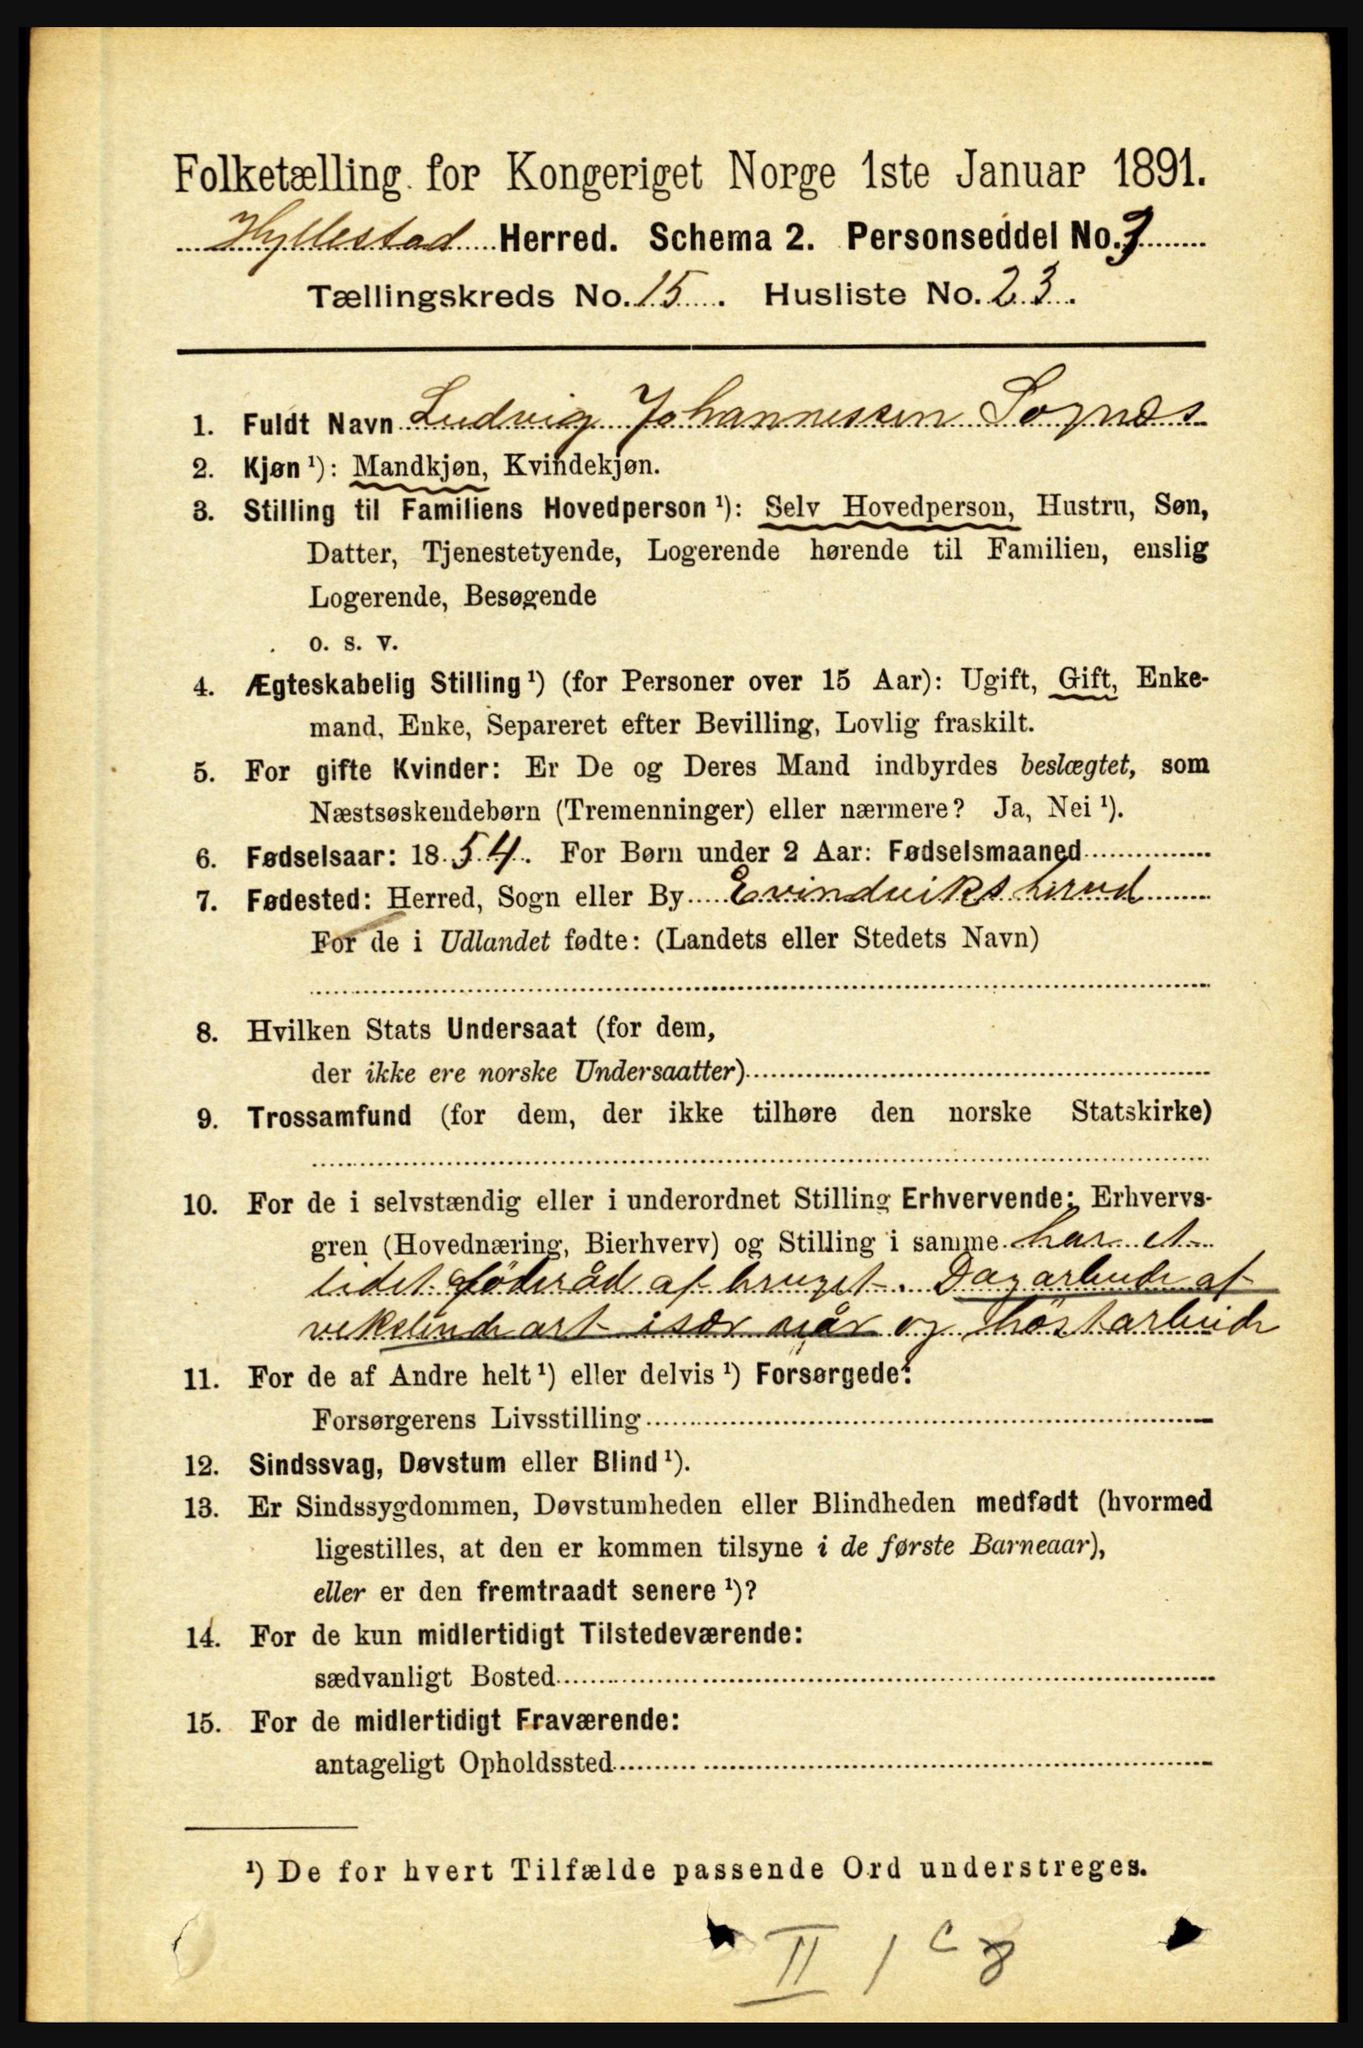 Folketælling for Kongeriget Norge 1ste Januar 1891.
Hyllestad Herred. Schema 2. Personseddel No. 3
Tællingskreds No. 15. Husliste No. 23.
1. Fuldt Navn Ludvig Johannessen Sognes
2. Kjøn ¹): Mandkjøn, Kvindekjøn.
3. Stilling til Familiens Hovedperson ¹): Selv Hovedperson, Hustru, Søn,
Datter, Tjenestetyende, Logerende hørende til Familien, enslig
Logerende, Besøgende
o. s. v.
4. Ægteskabelig Stilling ¹) (for Personer over 15 Aar): Ugift, Gift, Enke-
mand, Enke, Separeret efter Bevilling, Lovlig fraskilt.
5. For gifte Kvinder: Er De og Deres Mand indbyrdes beslægtet, som
Næstsøskendebørn (Tremenninger) eller nærmere? Ja, Nei ¹).
6. Fødselsaar: 1854. For Børn under 2 Aar: Fødselsmaaned
7. Fødested: Herred, Sogn eller By Evindviks herred
For de i Udlandet fødte: (Landets eller Stedets Navn)
8. Hvilken Stats Undersaat (for dem,
der ikke ere norske Undersaatter)
9. Trossamfund (for dem, der ikke tilhøre den norske Statskirke)
10. For de i selvstændig eller i underordnet Stilling Erhvervende: Erhvervs-
gren (Hovednæring, Bierhverv) og Stilling i samme har et
lidet föderåd af bruget. Dagarbeide af
vekslende art især og höstarbeide
11. For de af Andre helt ¹) eller delvis ¹) Forsørgede:
Forsørgerens Livsstilling
12. Sindssvag, Døvstum eller Blind ¹).
13. Er Sindssygdommen, Døvstumheden eller Blindheden medfødt (hvormed
ligestilles, at den er kommen tilsyne i de første Barneaar),
eller er den fremtraadt senere ¹)?
14. For de kun midlertidigt Tilstedeværende:
sædvanligt Bosted
15. For de midlertidigt Fraværende:
antageligt Opholdssted
¹) De for hvert Tilfælde passende Ord understreges.
II 1 c 8